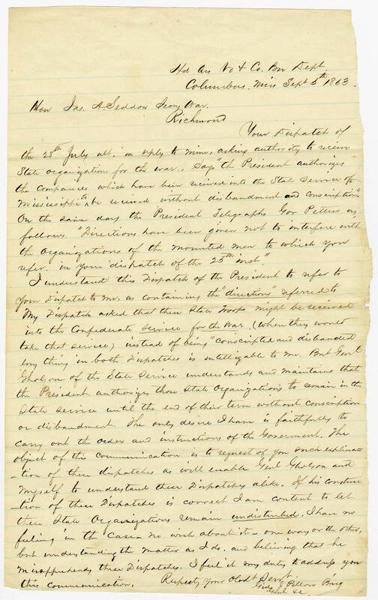 Hd Qrs Vo & Co. Bu Dept.
Columbus, Miss Sept 5th 1863
Hon Jas. A. Seddon Secy War.
Richmond
Your Dispatch of
the 25th July ult. in reply to mine, asking authority to receive
State organizations for the war, says "the President authorizes
the Companies which have been received into the State Service of
Mississippi to be received without disbandment and conscription".
On the same day the President Telegraphs Gov Pettus as
follows. "Directions have been given not to interfere with
the Organizations of the mounted men to which you
refer in your dispatch of the 25th inst."
I understand this Dispatch of the President to refer to
your Dispatch to me, as containing the "directions" referred to
My Dispatch asked that these State troops might be received
into the Confederate Service for the War (when they would
take that service) instead of being "conscripted and disbanded"
Every thing in both Dispatches is intelligable to me. But Genl
Gholson of the State Service understands and maintains that
the President authorizes these State Organizations to remain in the
State Service until the end of their term without conscription
or disbandment. The only desire I have is faithfully to
carry out the orders and instructions of the Government. The
object of this communication is to request of you such explana-
-tion of these dispatches as will enable Genl Gholson and
myself to understand these Dispatches alike. If his construc-
-tion of these Dispatches is correct I am content to let
these State Organizations remain undisturbed. I have no
feeling in the Case, no wish about it one way or the other,
but understanding the matter as I do, and believing that he
misapprehends these Dispatches. I feel it my duty to address you
this communication.
Respety Your Obdt Servt.
Gid J Pillow Brig
Genl &c